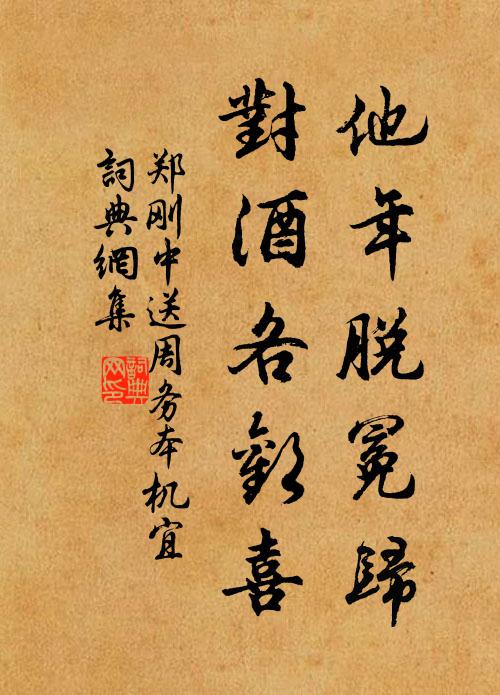 他年脱冕歸
對酒各歡喜
郑刚中送周务本机宜
詞典網集
詞典網印